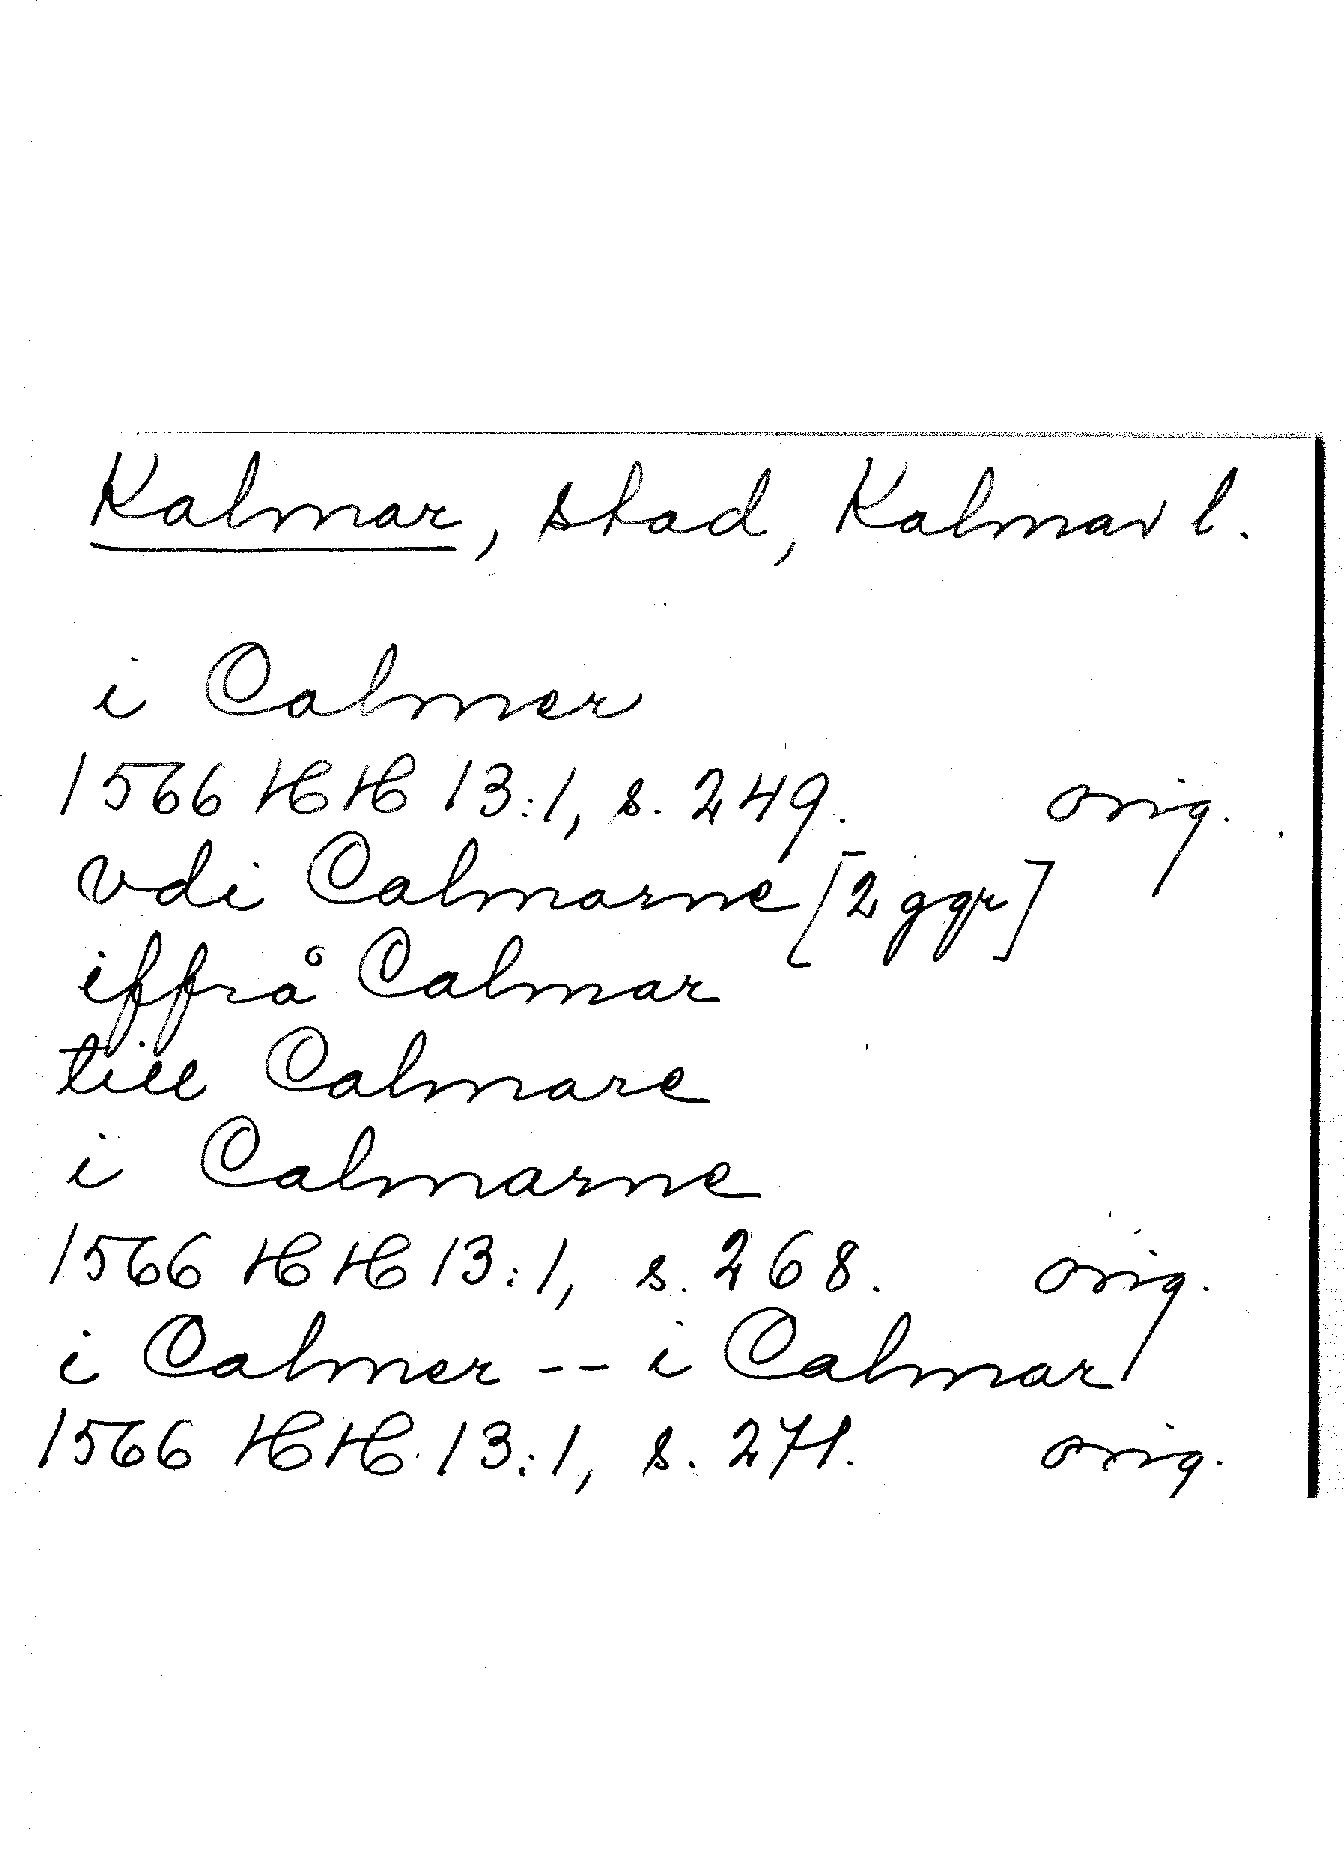 Kalmar, stad, Kalmar l.
i Calmer
1566 HH 13:1, s. 249. orig.
vdi Calmarne [2 ggr]
iffrå Calmar
till Calmare
i Calmarne
1566 HH 13:1, s. 268. orig.
i Calmer -- i Calmar
1566 HH 13:1, s. 271. orig.